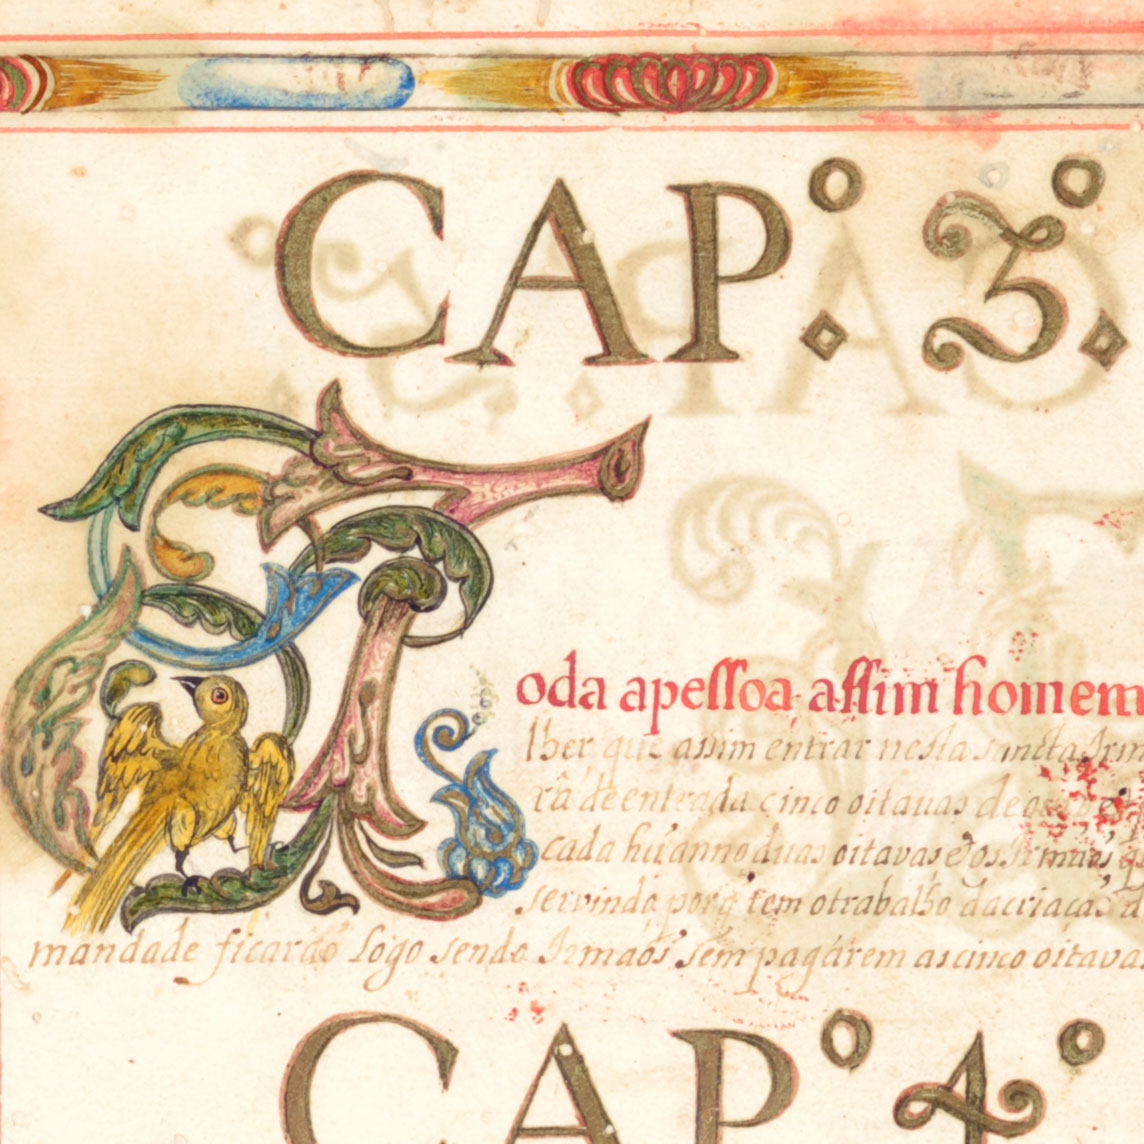 CAP.º 3.º
Toda apessoa assim homem
lher que assim entrar nesta sancta Irm
râ de entrada cinco oitauas de
cada hũ anno duas oitavas e os Irmaös
servindo porq̃ tem o trabalho dacriacaõ
mandade ficaraõ logo sendo Irmaõs sem pagárem as cinco oitava
CAPº 4º